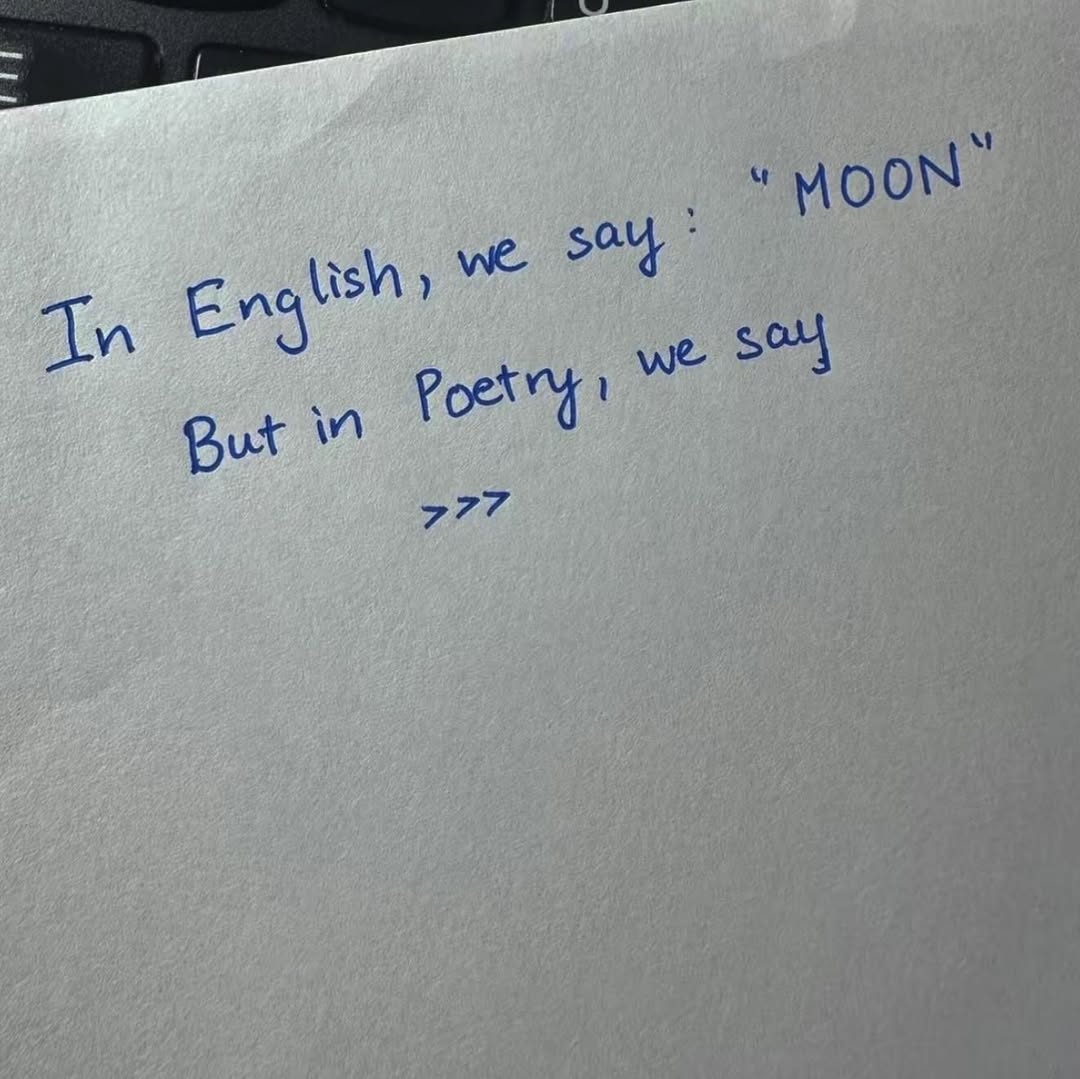 In English, we say: "MOON"
But in Poetry, we say
>>>